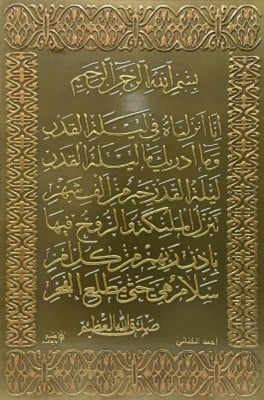 بسم الله الرحمن الرحيم
إنا أنزلناه في ليلة القدر
وما أدريك ما ليلة القدر
ليلة القدر خير من ألف شهر
تنزل الملئكة والروح فيها
بإذن ربهم من كل أمر
سلام هي حتى مطلع الفجر
صدق الله العظيم